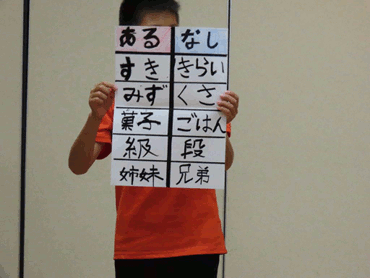 ある なし
すき きらい
みず くさ
菓子 ごはん
級 段
姉妹 兄弟